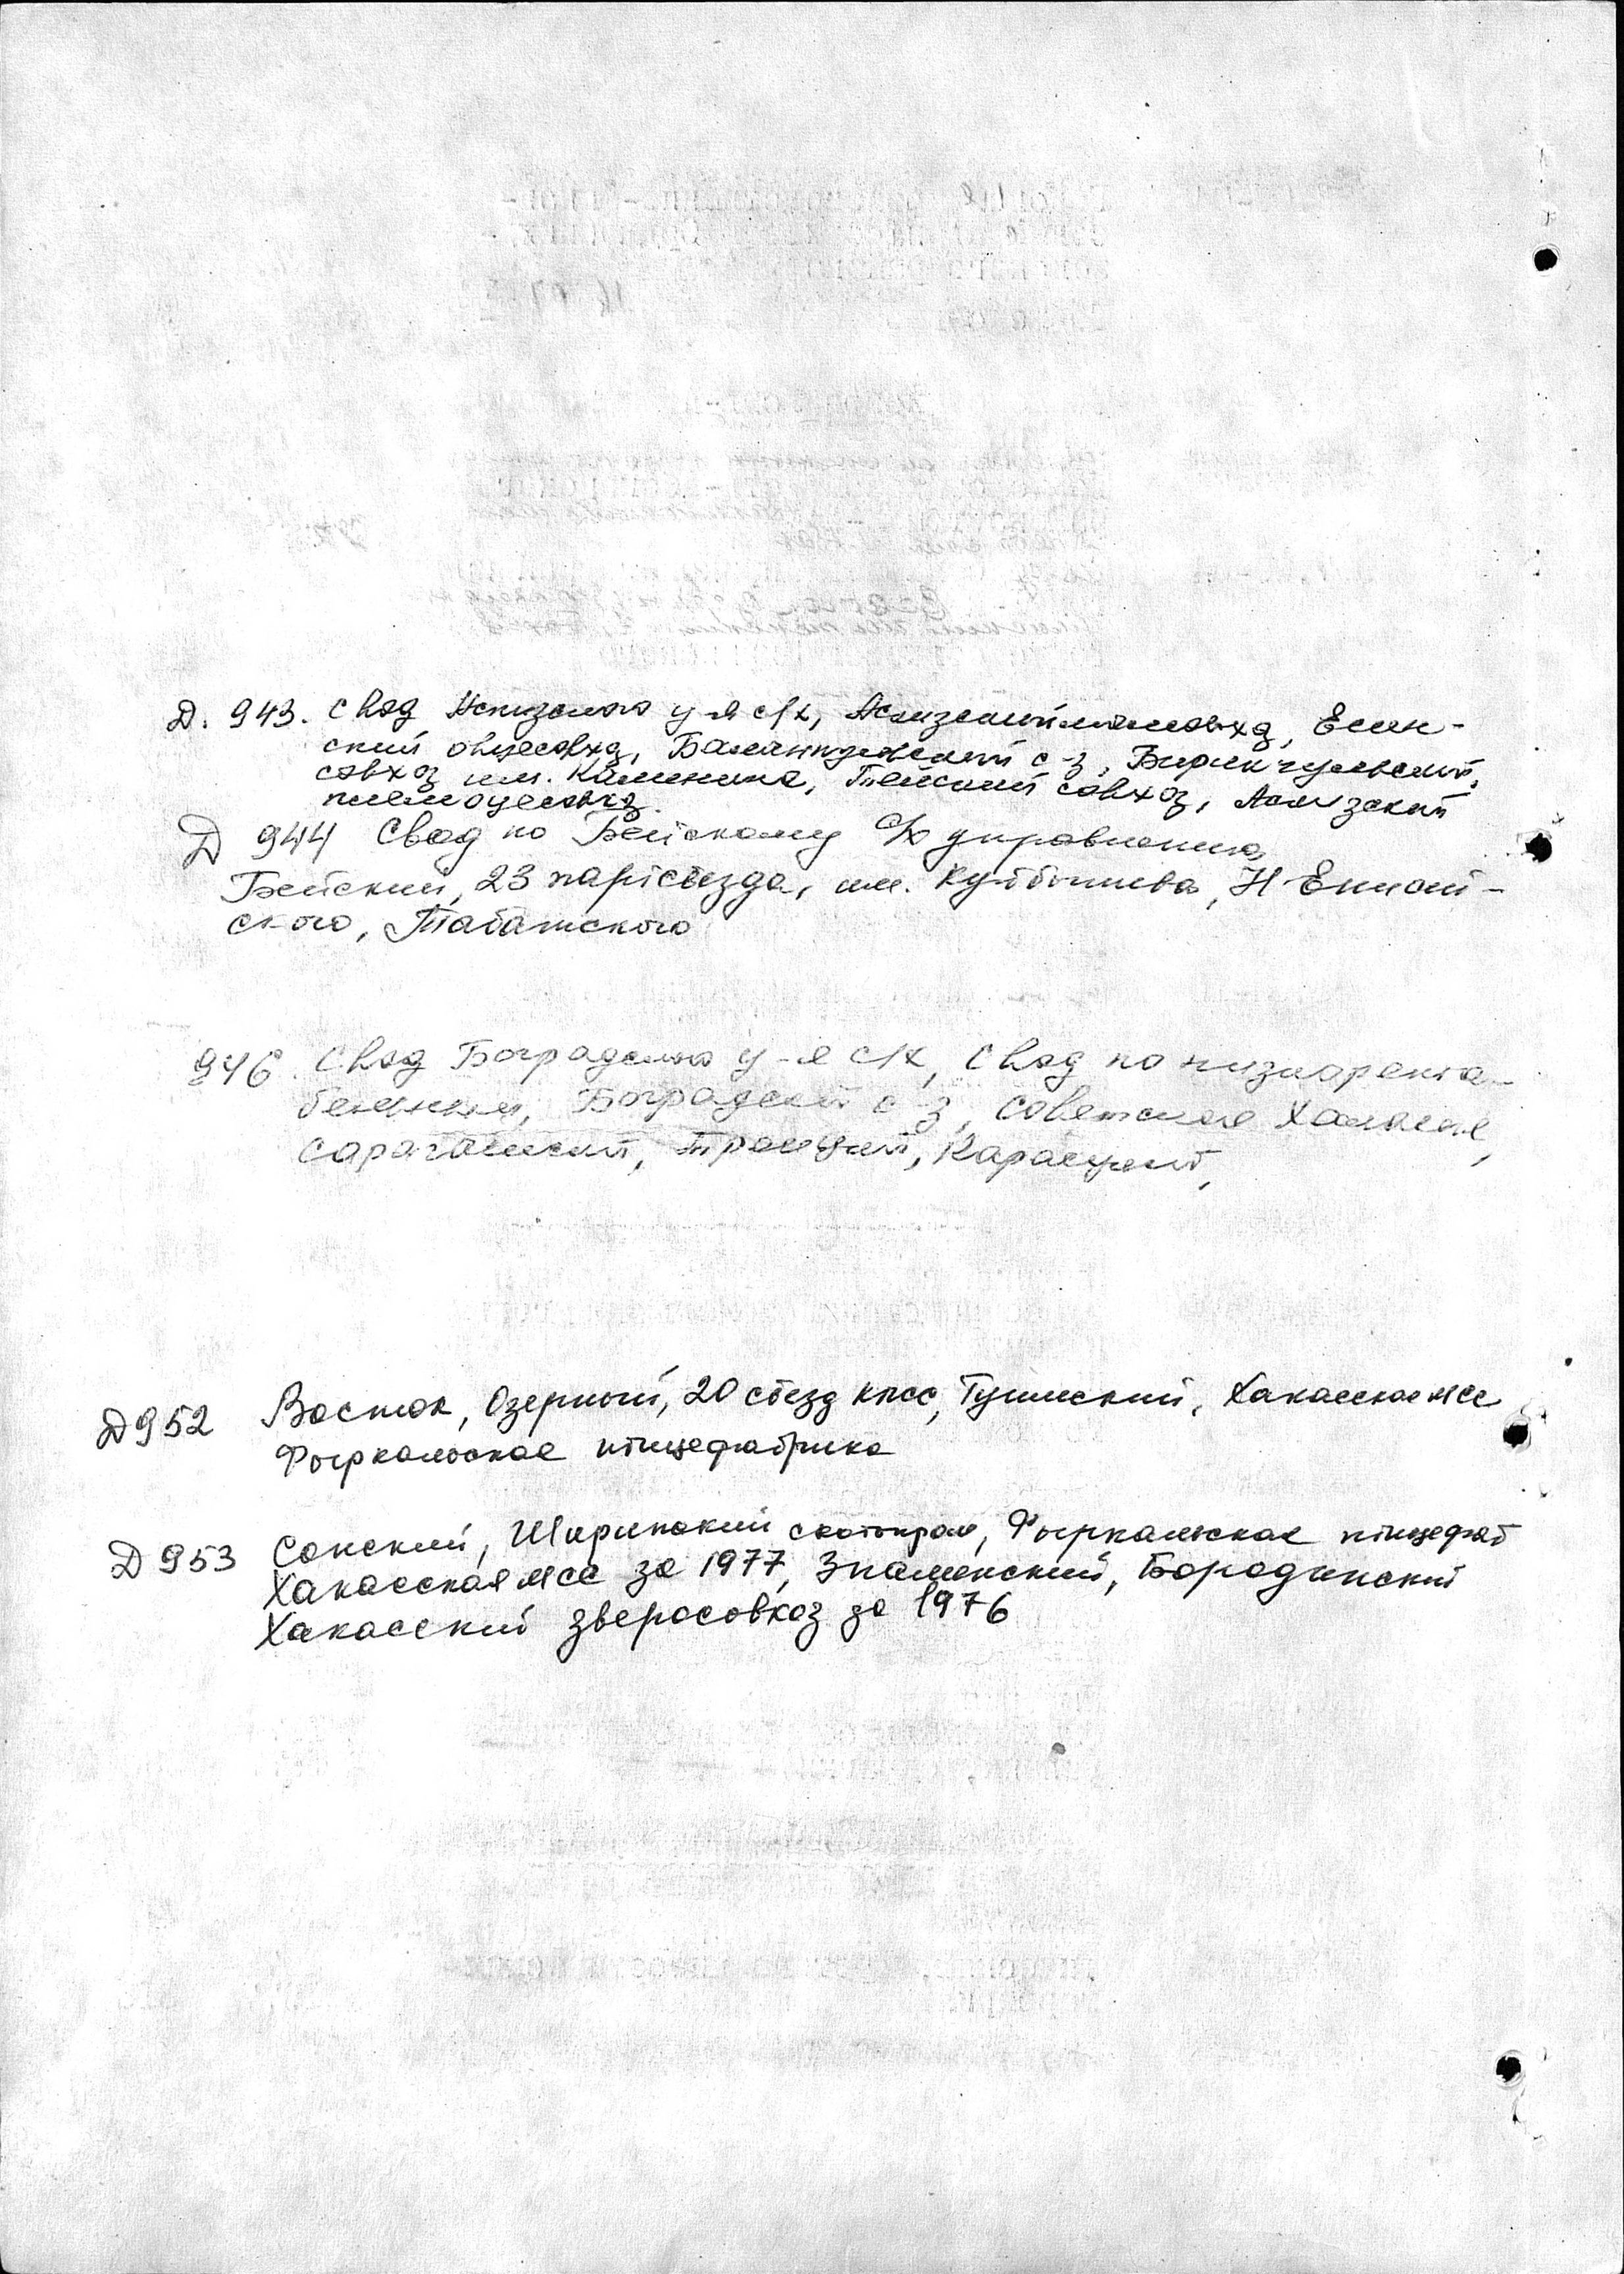 Д. 943. Свод Аскизского у-я с/х, Аскизский молсовхоз, Есин-
ский овцесовхоз, Балыксинский с-з, Бирикчульский,
совхоз им. Калинина, Тейский совхоз, Аскизский
племовцесовхоз.
Д 944 Свод по Бейскому с/х управлению
Бейский, 23 партсъезда, им. Куйбышева, Н Енисей-
ского, Табатского
946. Свод Боградского у-я с/х, Свод по низкорента-
бельным, Боградский с-з, Советская Хакасия,
Сарагашский, Троицкий, Карасукский,
Д 952 Восток, Озерный, 20 съезд кпсс, Туимский, Хакасская мсс
Фыркальская птицефабрика
Д 953 Сонский, Ширинский скотопром, Фыркальская птицефаб
Хакасская мсс за 1977, Знаменский, Бородинский
Хакасский зверосовхоз за 1976